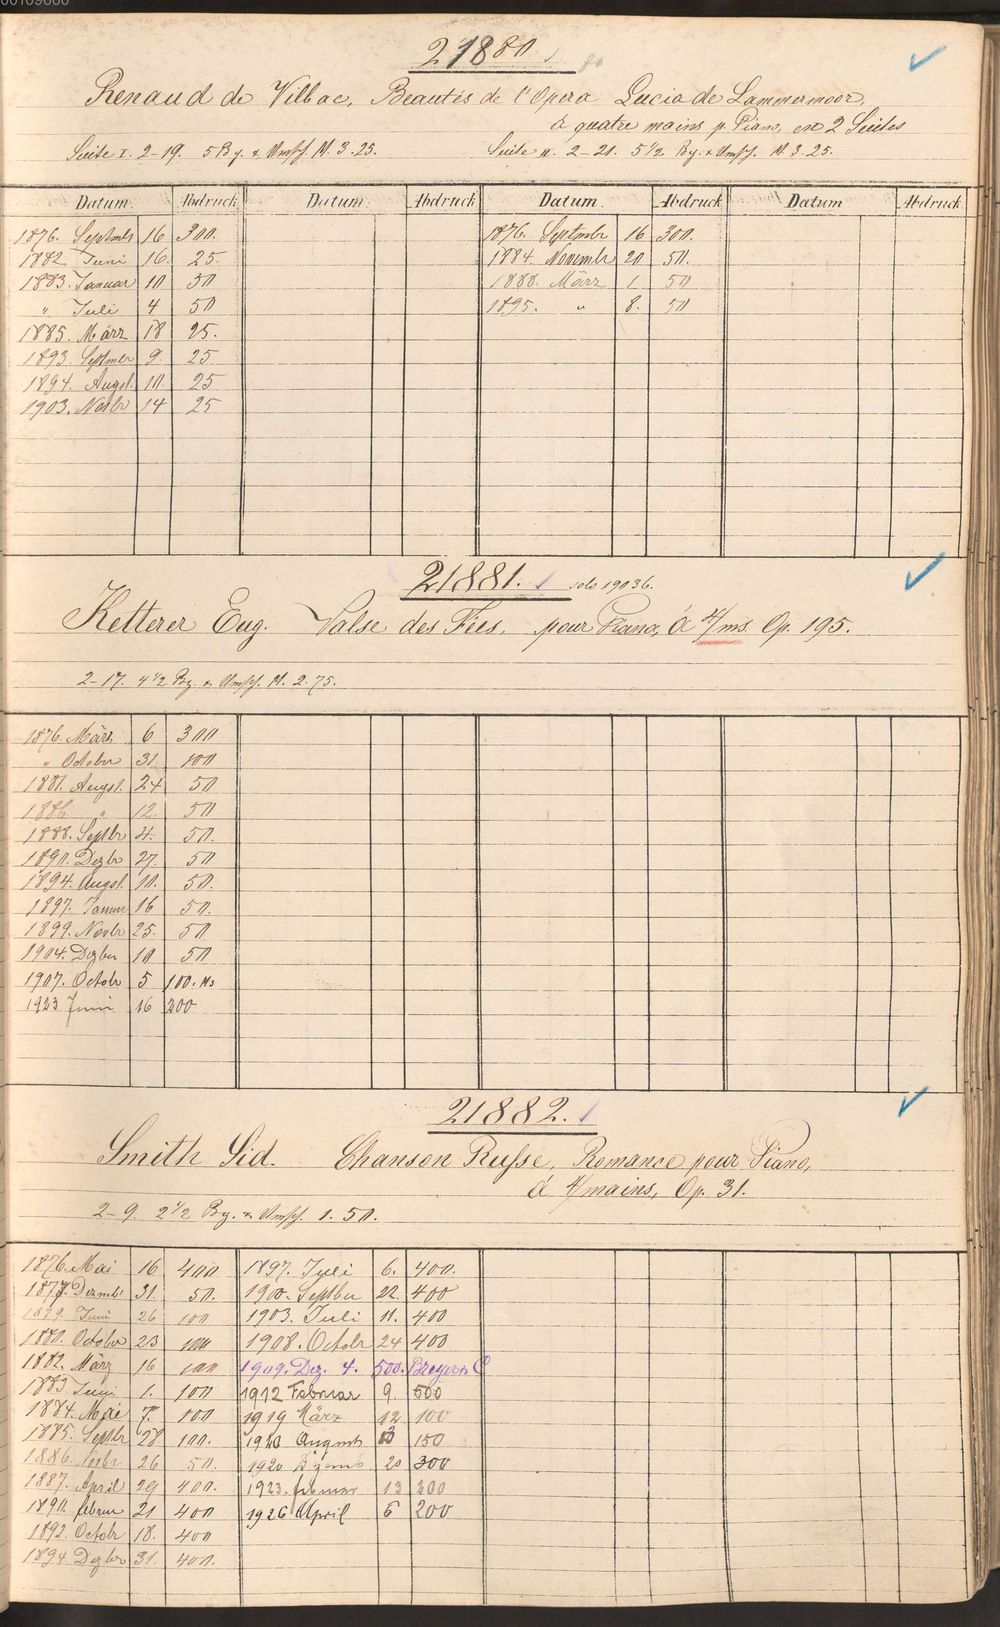 00109660
21880
Renaud de Vilbac, Beautés de l'Opera Lucia de Lammermoor,
à quatre mains p. Piano, en 2 Suites
Suite I. 2-19. 5 Bg. & Umsch. M. 3.25. Suite II. 2-21. 5 1/2 Bg. & Umsch. M. 3.25.
Datum. Abdruck Datum. Abdruck Datum. Abdruck Datum Abdruck
1876. Septmbr 16 300. 1876. Septmbr 16 300.
1882 Juni 16. 25. 1884. Novembr 20 50.
1883. Januar 10 50 1888. März 1. 50
" Juli 4 50 1895. " 8. 50
1885. März 18 25.
1893. Septmbr 9. 25
1894. Augst. 10. 25
1903. Novbr 14 25
21881. solo 19036.
Ketterer Eug. Valse des Fées, pour Piano, à 4/ms. Op. 195.
2-17. 4 1/2 Bg. & Umsch. M. 2.75.
1876. März 6 300
" October 31. 100
1881. Augst. 24 50
1886. " 12. 50
1888. Septbr 4. 50.
1890. Dezbr 27. 50
1894. Augst. 10. 50.
1897. Januar 16 50.
1899. Novbr 25. 50
1904. Dezber 10 50
1907. Octobr 5 100. Ns
1923 Juni 16 200
21882.
Smith Sid. Chanson Russe, Romance pour Piano,
à 4/mains, Op. 31.
2-9. 2 1/2 Bg. & Umsch. 1.50.
1876. Mai 16 400 1897. Juli 6. 400.
1877. Dezmbr 31. 50. 1900. Septber 22. 400
1879. Juni 26 100 1903. Juli 11. 400
1880. October 23 100 1908. Octobr 24 400
1882. März 16 100 1909. Dez. 4. 500.
1883. Juni 1. 100 1912 Februar 9. 500
1884. Mai 7. 100 1919 März 12 100
1885. Septbr 28. 100. 1920 August 150
1886. Novbr 26 50. 1920 20 300
1887. April 29 400. 1923. februar 13 200
1890. februar 21 400 1926 April 6 200
1892. Octobr 18. 400
1894. Dezber 31. 400.